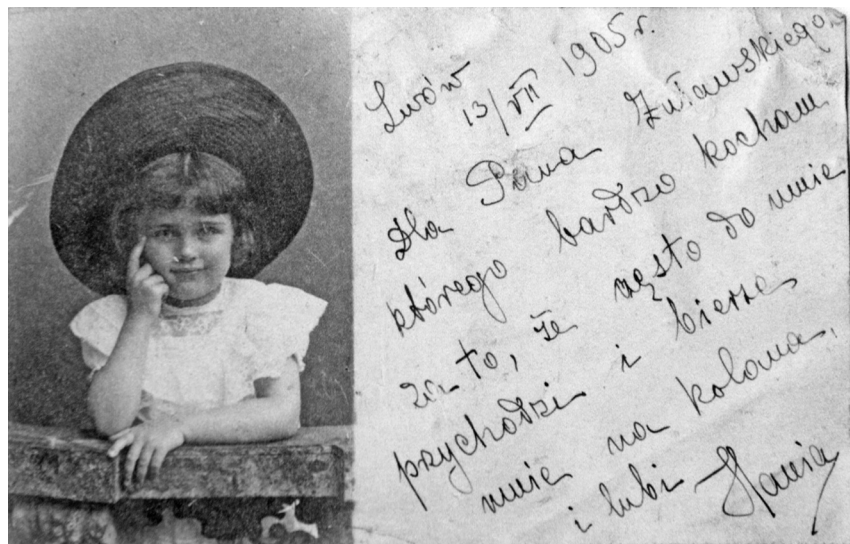 Lwów
13/VII 1905 r.
Dla Pana Żuławskiego
którego bardzo kocham
za to, że często do mnie
przychodzi i bierze
mnie na kolana,
i lubi Hania